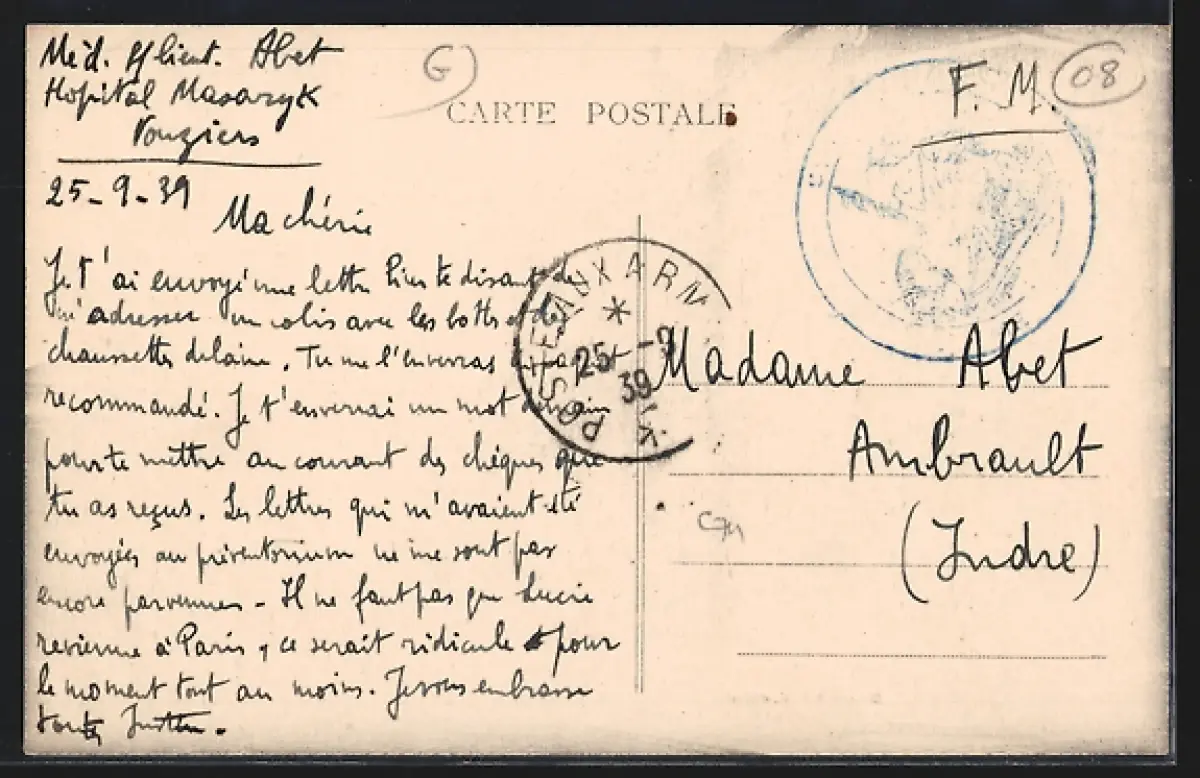 Méd. s/lieut. Abet
Hopital Masaryk
Vouziers
25-9-39
Ma chérie
Je t'ai envoyé une lettre hier te disant de
m'adresser un colis avec les bottes et des
chaussettes de laine. Tu me l'enverras en paquet
recommandé. Je t'enverrai un mot demain
pour te mettre au courant des chèques que
tu as reçus. Les lettres qui m'avaient été
envoyées au préventorium ne me sont pas
encore parvenues - Il ne faut pas que Lucie
revienne à Paris, ce serait ridicule pour
le moment tout au moins. Je vous embrasse
toutes
CARTE POSTALE
F. M.
08
POSTE AUX ARM
*
25 -9
39
Madame Abet
Ambrault
(Indre)